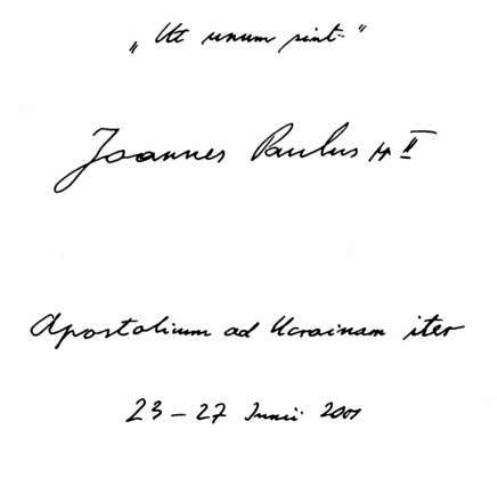 „Ut unum sint.”
Joannes Paulus pp II
Apostolicum ad Ucrainam iter
23 – 27 Junii 2001